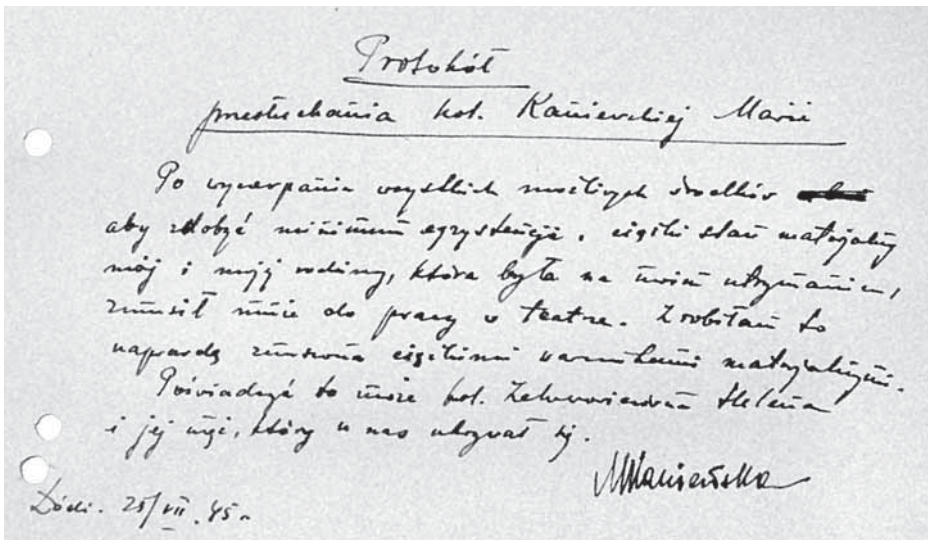 Protokół
przesłuchania kol. Kaniewskiej Marii
Po wyczerpaniu wszystkich możliwych środków
aby zdobyć minimum egzystencji, ciężki stan materjalny
mój i mojej rodziny, która była na moim utrzymaniu,
zmusił mnie do pracy w teatrze. Zrobiłam to
naprawdę zmuszona ciężkimi warunkami materjalnymi.
Poświadczyć to może kol. Helena
i jej mąż, który u nas ukrywał się.
MKaniewska
Łódź. 25/VII.45 r.